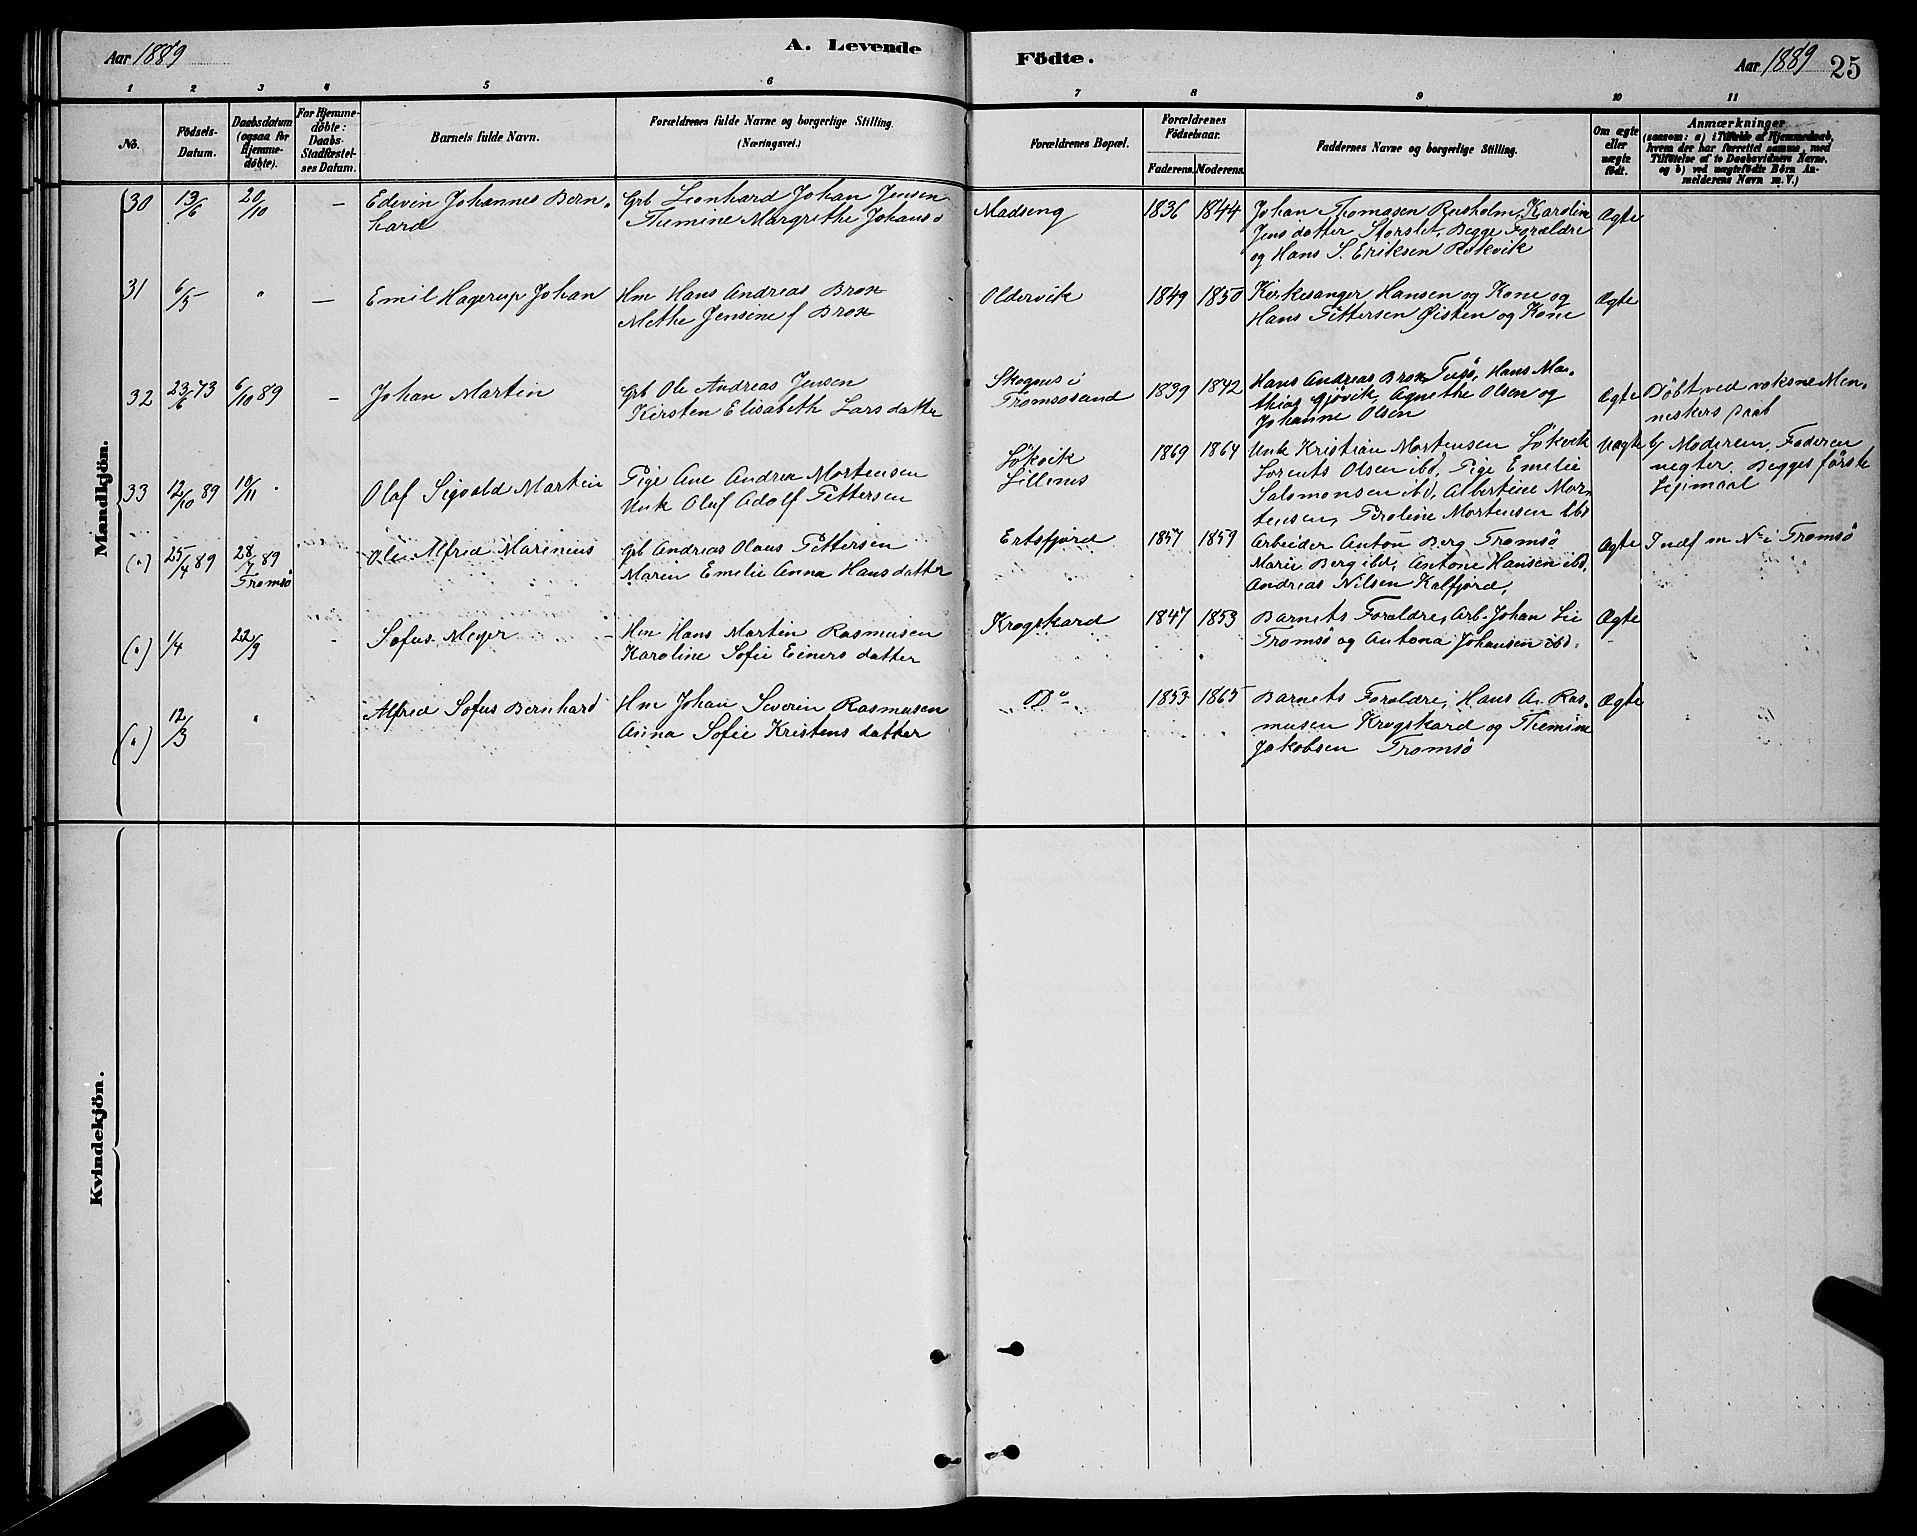 Aar 1889
A. Levende
Födte.
Aar 1889 25
1 2 3 4 5 6 7 8 9 10 11
No.
Födsels-
Datum.
Daabsdatum
(ogsaa for
Hjemme-
döbte).
For Hjemme-
döbte:
Daabs-
Stadfæstel-
ses Datum.
Barnets fulde Navn.
Forældrenes fulde Navne og borgerlige Stilling.
(Næringsvei.)
Forældrenes Bopæl.
Forældrenes
Födselsaar.
Faderens. Moderens.
Faddernes Navne og borgerlige Stilling.
Om ægte
eller
uægte
født.
Anmærkninger
(saasom: a) i Tilfælde af Hjemmedaab,
hvem der har forrettet samme, med
Tilföielse af to Daabsvidners Navne.
og b) ved uægtefödte Börn An-
melderens Navn m. V.)
Mandkjön.
30 13/6 20/10 — Edevin Johannes Bern-
hard
Grb Leonhard Johan Jensen
Temine Margrethe Johans d
Madseng 1836 1844
Johan Thomasen Reisholm, Karolin
Jens datter Storslet, Begge Forældre
og Hans S. Eriksen Rekvik
Ægte
31 6/5 " — Emil Hagerup Johan
Hm Hans Andreas Brox
Methe Jensine f Brox
Oldervik 1849 1850
Kirkesanger Hansen og Kone og
Hans Pettersen Øisten og Kone
Ægte
32 23/6 73 6/10 89 — Johan Martin
Grb Ole Andreas Jensen
Kirsten Elisabeth Lars datter
Skognes i
Tromsøsund
1839 1842
Hans Andreas Brox, Hans Ma-
thias Gjövik, Agnethe Olsen og
Johanne Olsen
Ægte
Döbt ved voksne Men-
neskers Daab
33 12/10 89 10/11 " Olaf Sigvald Martin
Pige Ane Andrea Mortensen
Unk Oluf Adolf Pettersen
Lökvik
Lillenes
1869 1864
Unk Kristian Mortensen Lökvik
Lorents Olsen ibd, Pige Emelie
Salomonsen ibd, Albertine Mor-
tensen, Peroline Mortensen ibd
Uægte
b/ Moderen, Faderen
negter. Begges förste
Lejrmaal
(") 25/4 89 28/7 89
Tromsö
Ole Alfred Marinius
Grb Andreas Olaus Pettersen
Maren Emelie Anna Hans datter
Ertsfjord 1857 1859
Arbeider Anton Berg Tromsö
Marie Berg ibd, Antone Hansen ibd,
Andreas Nilsen Kalfjord,
Ægte
Indf m No i Tromsö
(") 1/4 22/9 Sofus Meyer
Hm Hans Martin Rasmusen
Karoline Sofie Einers datter
Krogskard 1847 1853
Barnets Forældre, Arb. Johan Lie
Tromsö og Antona Johansen ibd.
Ægte
(") 12/3 " Alfred Sofus Bernhard
Hm Johan Severin Rasmusen
Anna Sofie Kristens datter
Do 1853 1865
Barnets Forældre, Hans A. Ras-
musen Krogskard og Temine
Jakobsen Tromsö
Ægte
Kvindekjön.